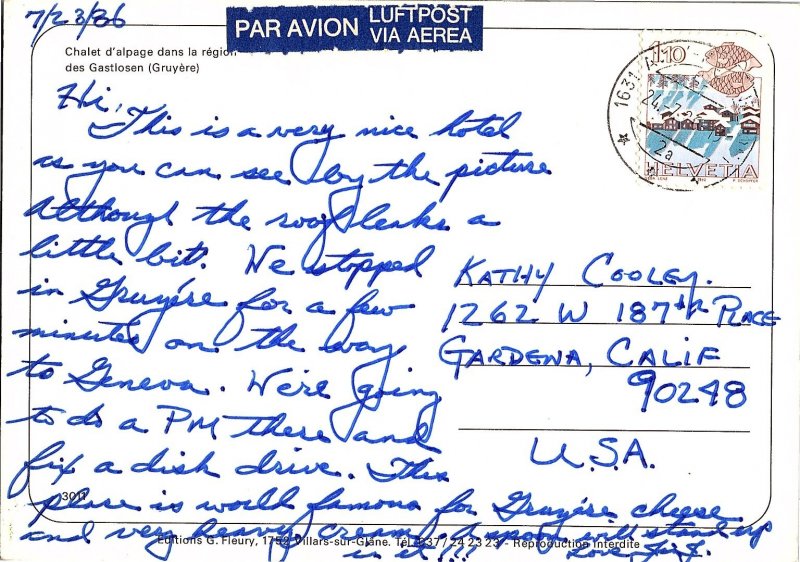 7/23/86
PAR AVION LUFTPOST
VIA AEREA
Chalet d'alpage dans la région
des Gastlosen (Gruyère)
1.10
1631
24.-7.
2a
HELVETIA
Hi,
This is a very nice hotel
as you can see by the picture
Although the roof leaks a
little bit. We stopped
in Gruyére for a few
minutes on the way
to Geneva. We're going
to do a PM there and
fix a dish drive. This
place is world famous for Gruyére cheese
and very heavy cream. A spoon will stand up
in it!!!
Love,
KATHY COOLEY.
1262 W 187th PLACE
GARDENA, CALIF
90248
U.S.A.
3011
Editions G. Fleury, 1752 Villars-sur-Glâne. Tél. 037/24 23 23 - Reproduction interdite